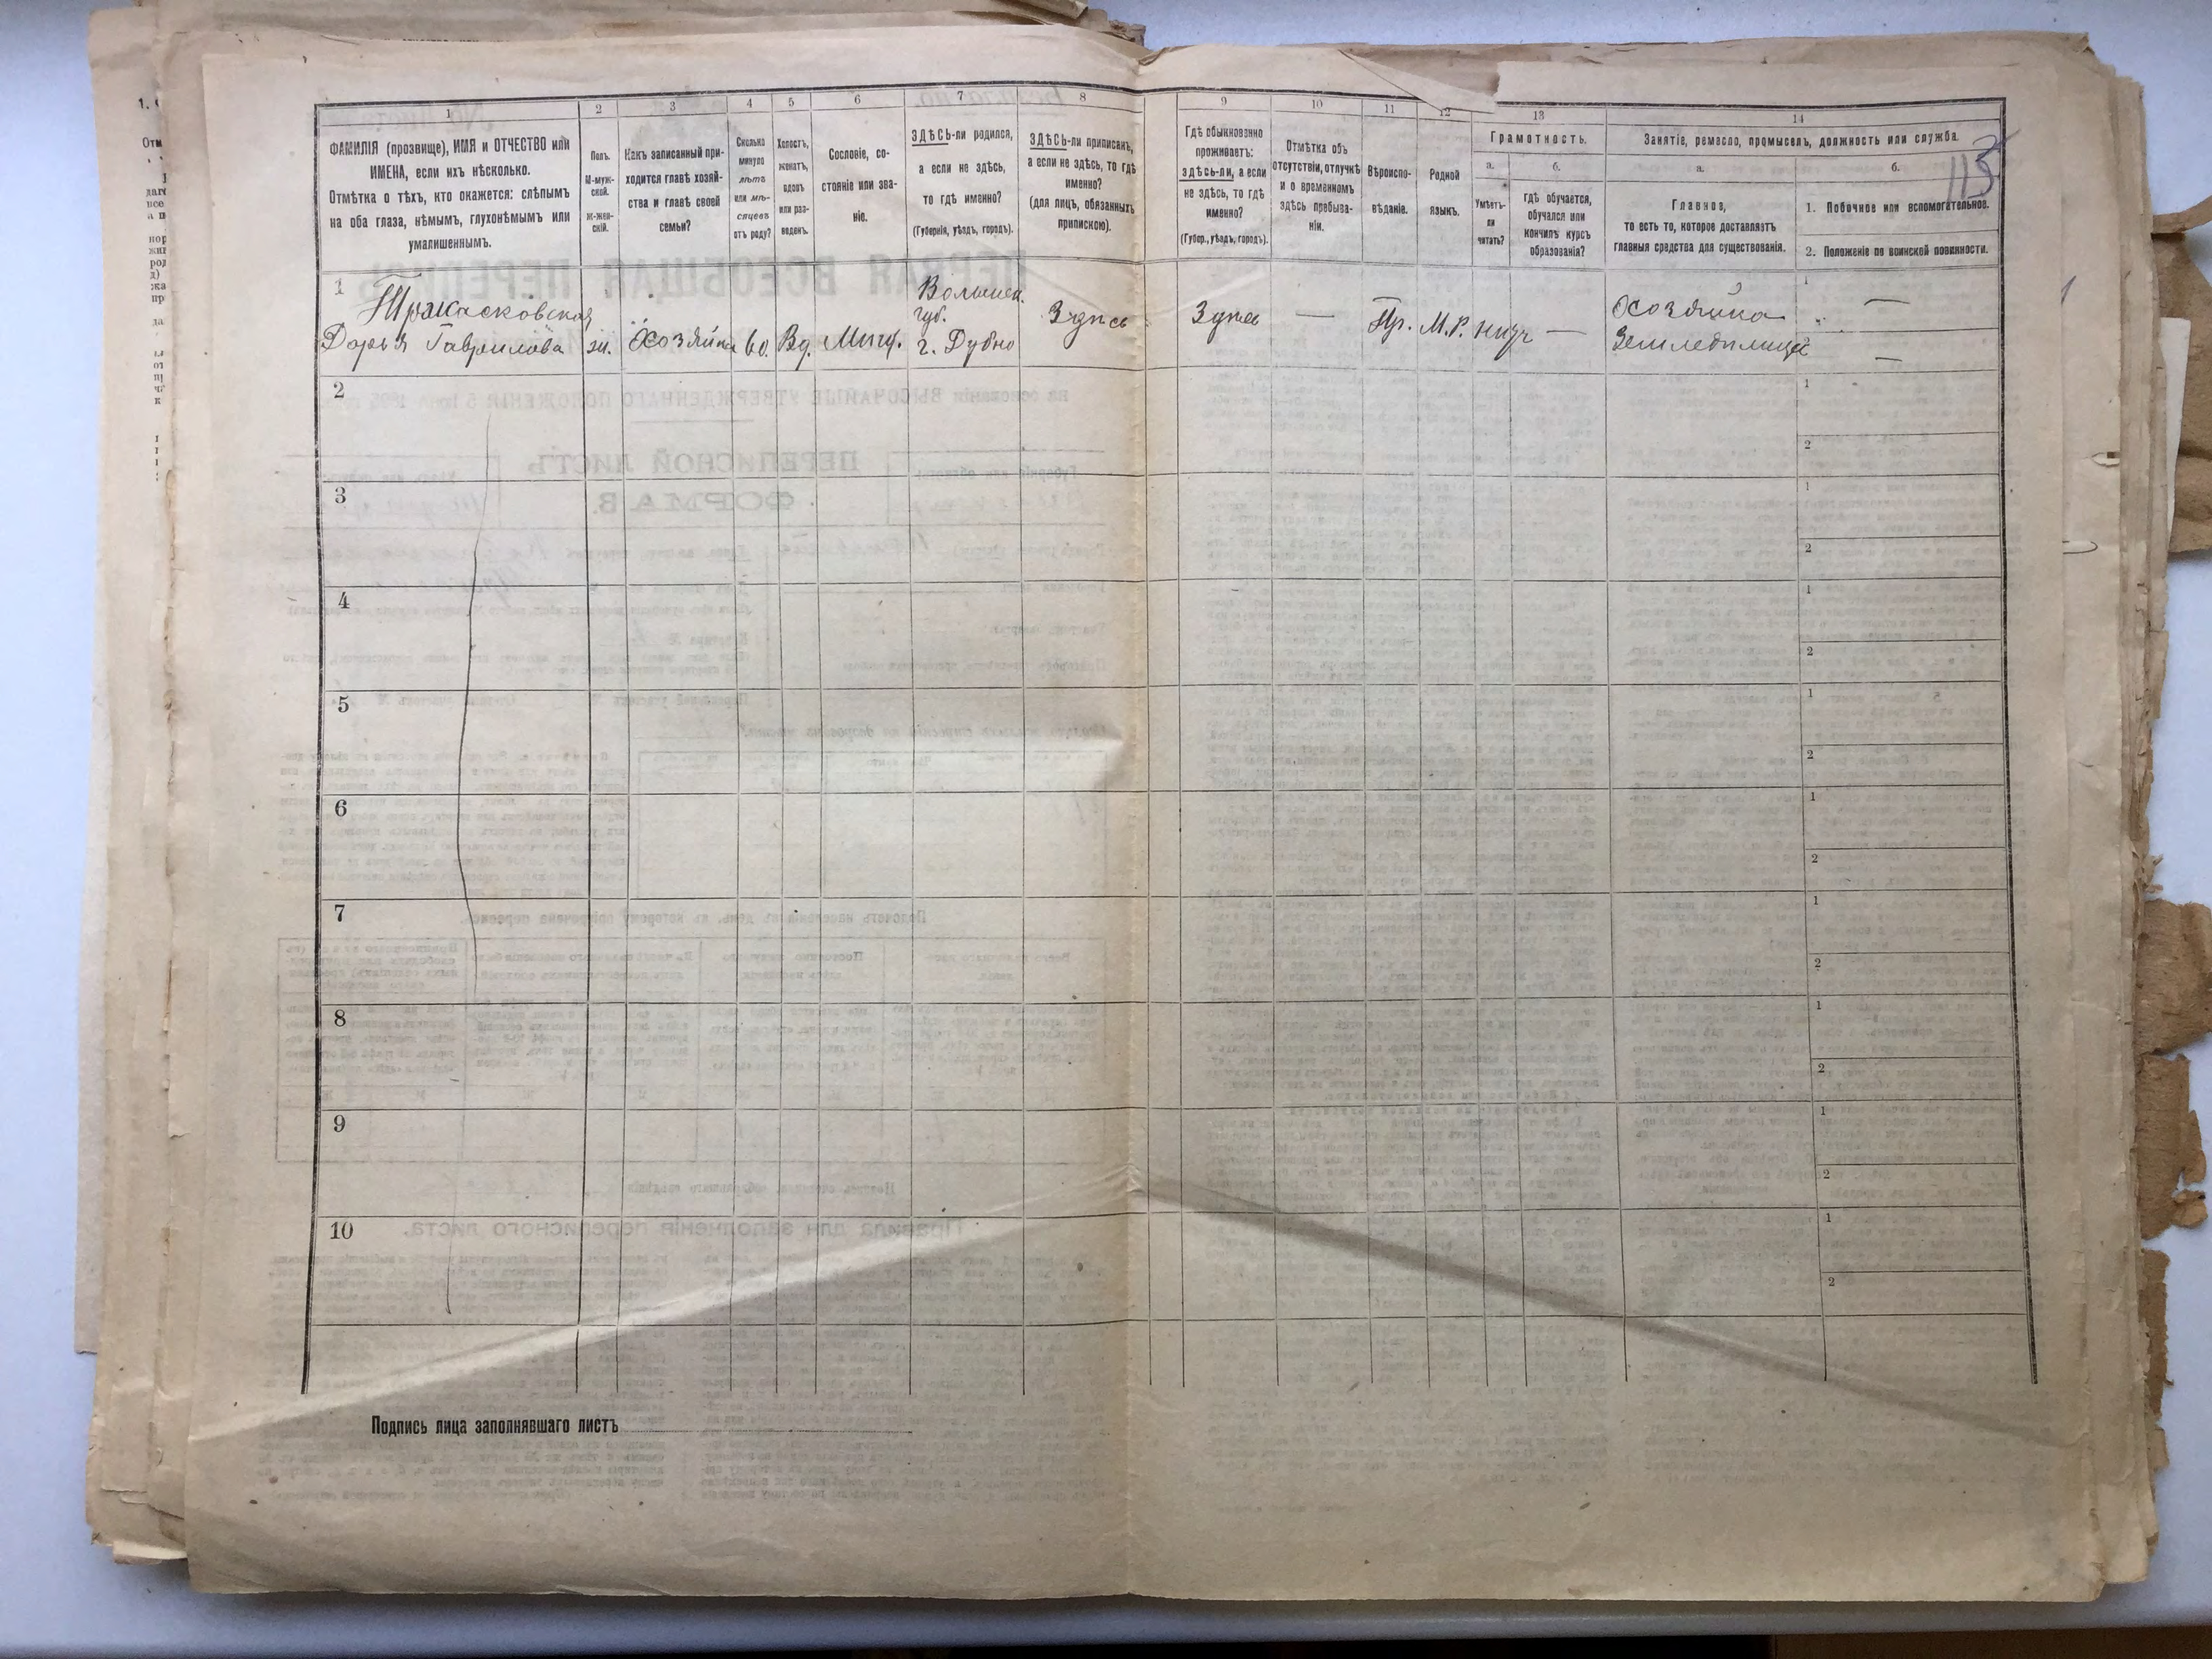 1 2 3 4 5 6 7 8 9 10 11 12 13 14
ФАМИЛІЯ (прозвище), ИМЯ и ОТЧЕСТВО или
ИМЕНА, если ихъ нѣсколько.
Отмѣтка о тѣхъ, кто окажется: слѣпымъ
на оба глаза, нѣмымъ, глухонѣмымъ или
умалишеннымъ.
Полъ.
М-муж-
ской.
Ж-жен-
скій.
Какъ записанный при-
ходится главѣ хозяй-
ства и главѣ своей
семьи?
Сколько
минуло
лѣтъ
или мѣ-
сяцевъ
отъ роду?
Холостъ,
женатъ,
вдовъ
или раз-
веденъ.
Сословіе, со-
стояніе или зва-
ніе.
ЗДѢСЬ-ли родился,
а если не здѣсь,
то гдѣ именно?
(Губернія, уѣздъ, городъ).
ЗДѢСЬ-ли приписанъ,
а если не здѣсь, то гдѣ
именно?
(для лицъ, обязанныхъ
припискою).
Гдѣ обыкновенно
проживаетъ:
здѣсь-ли, а если
не здѣсь, то гдѣ
именно?
(Губер., уѣздъ, городъ).
Отмѣтка объ
отсутствіи, отлучкѣ
и о временномъ
здѣсь пребыва-
ніи.
Вѣроиспо-
вѣданіе.
Родной
языкъ.
Грамотность.
а.
Умѣетъ-
ли
читать?
б.
Гдѣ обучается,
обучался или
кончилъ курсъ
образованія?
Занятіе, ремесло, промыселъ, должность или служба.
а.
Главное,
то есть то, которое доставляетъ
главныя средства для существованія.
б.
113
1. Побочное или вспомогательное.
2. Положеніе по воинской повинности.
1
Дарья Гаврилова
ж.
Хозяйка
60.
Вд.
Мѣщ.
Волынск.
губ.
г. Дубно
Здѣсь
Здѣсь
—
Пр.
М.Р.
—
Хозяйка
1
—
2
—
2
1
2
3
1
2
4
1
2
5
1
2
6
1
2
7
1
2
8
1
2
9
1
2
10
1
2
Подпись лица заполнявшаго листъ